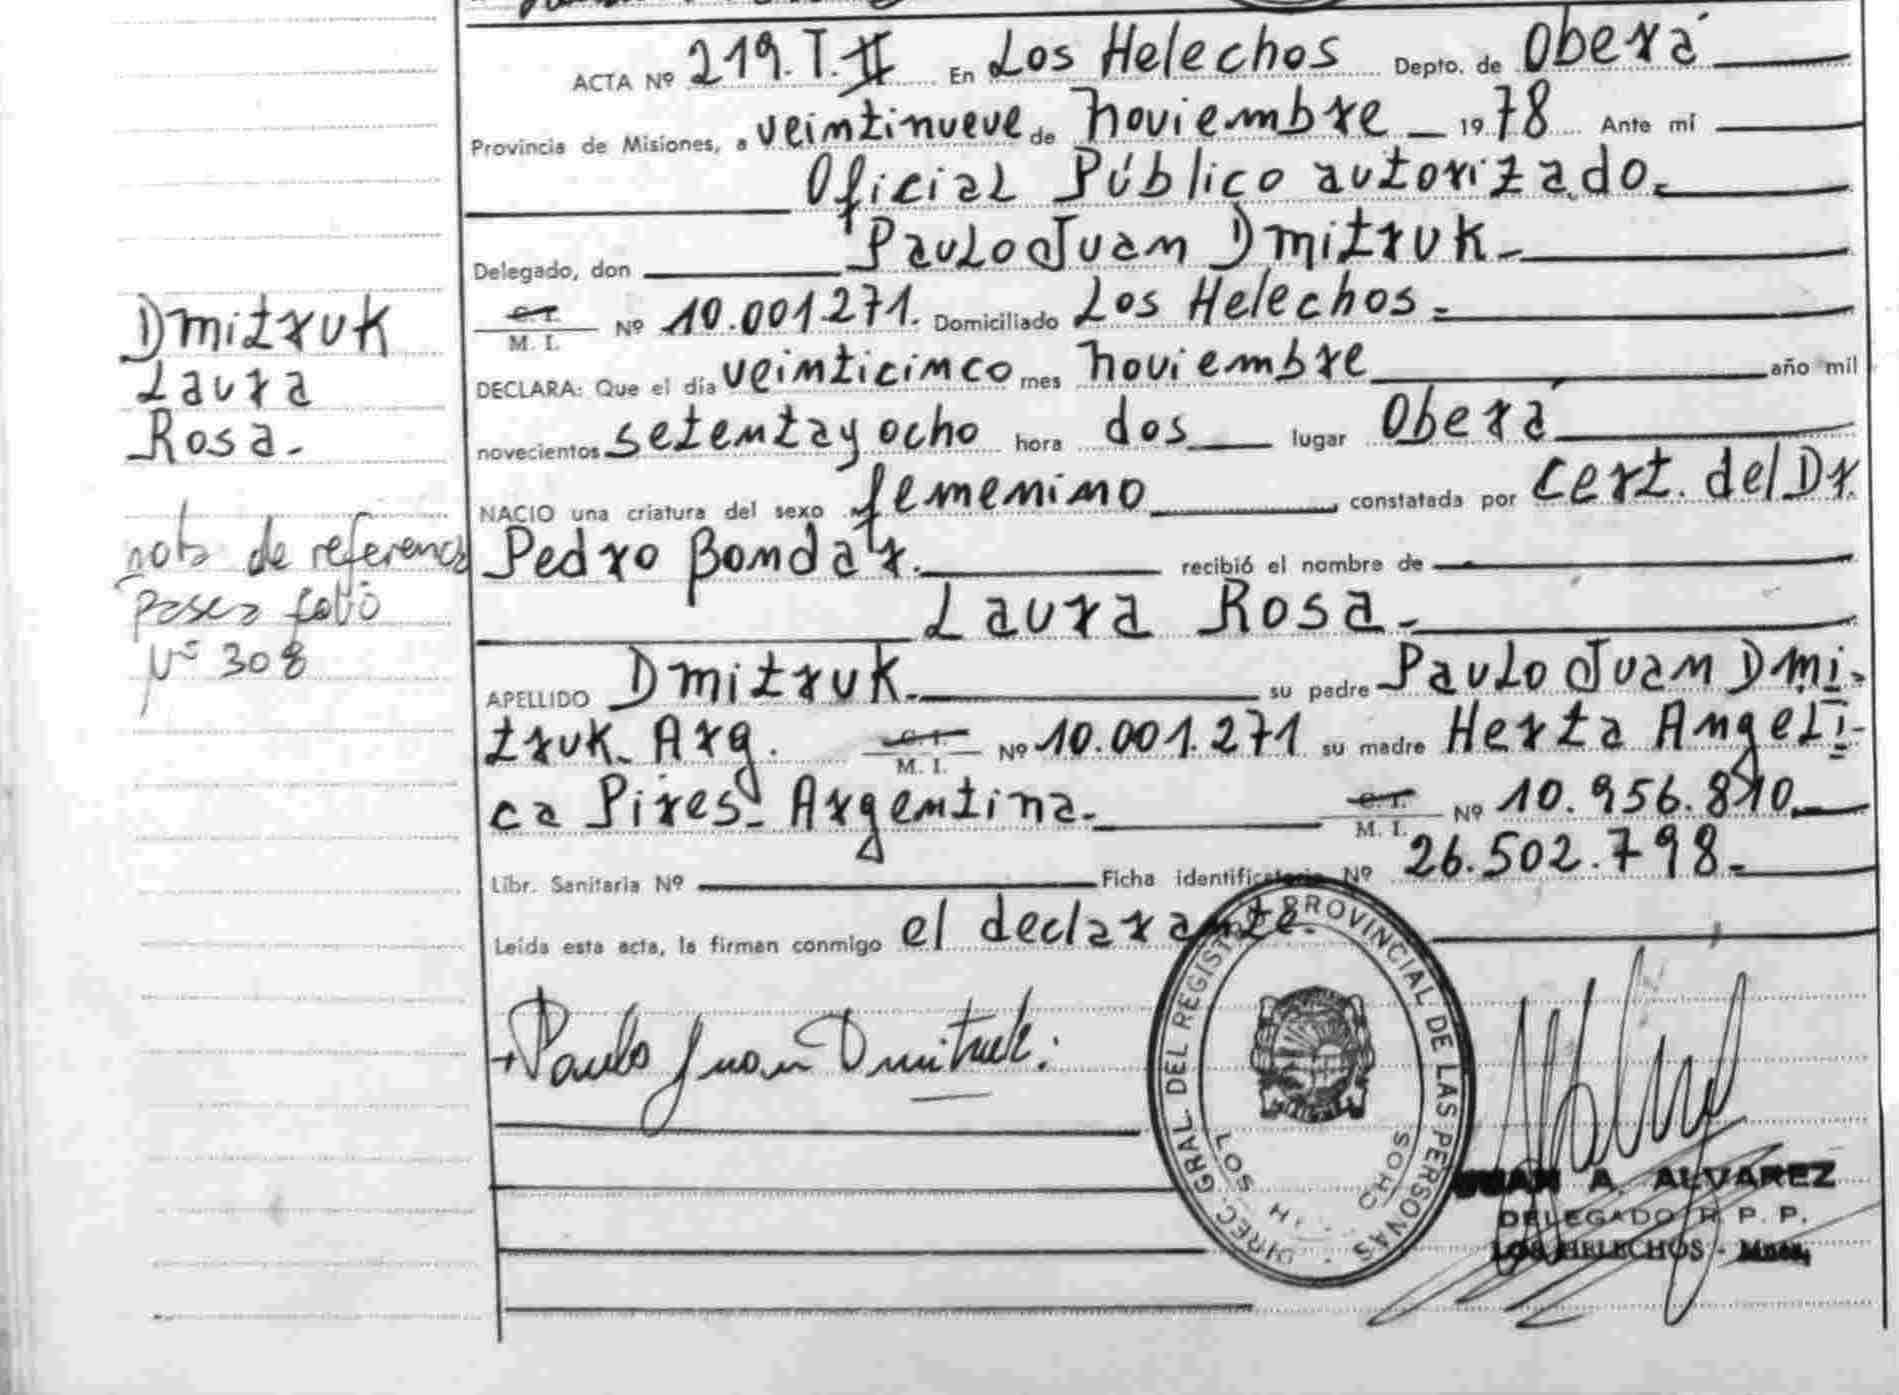 ACTA Nº 219. T. II En Los Helechos Depto. de Oberá
Provincia de Misiones, a veintinueve de noviembre 1978 Ante mi
Oficial Público autorizado.
Delegado, don Paulo Juan Dmitruk.
C. I. M. I. Nº 10.001.271. Domiciliado Los Helechos.
DECLARA: Que el día veinticinco mes noviembre año mil
novecientos setenta y ocho hora dos lugar Oberá
NACIO una criatura del sexo femenino constatada por cert. del Dr.
Pedro Bondar. recibió el nombre de
Laura Rosa.
APELLIDO Dmitruk. su padre Paulo Juan Dmi-
truk. Arg. C. I. M. I. Nº 10.001.271 su madre Herta Angeli-
ca Pires. Argentina. C. I. M. I. Nº 10.956.810.
Libr. Sanitaria Nº Ficha identificatoria Nº 26.502.798.
Leída esta acta, la firman conmigo el declarante.
Dmitruk
Laura
Rosa.
nota de referencia
pasea folio
Nº 308
Paulo Juan Dmitruk.
DIREC GRAL DEL REGISTRO PROVINCIAL DE LAS PERSONAS
LOS H CHOS
JUAN A. ALVAREZ
DELEGADO R. P. P.
LOS HELECHOS - Mnes.